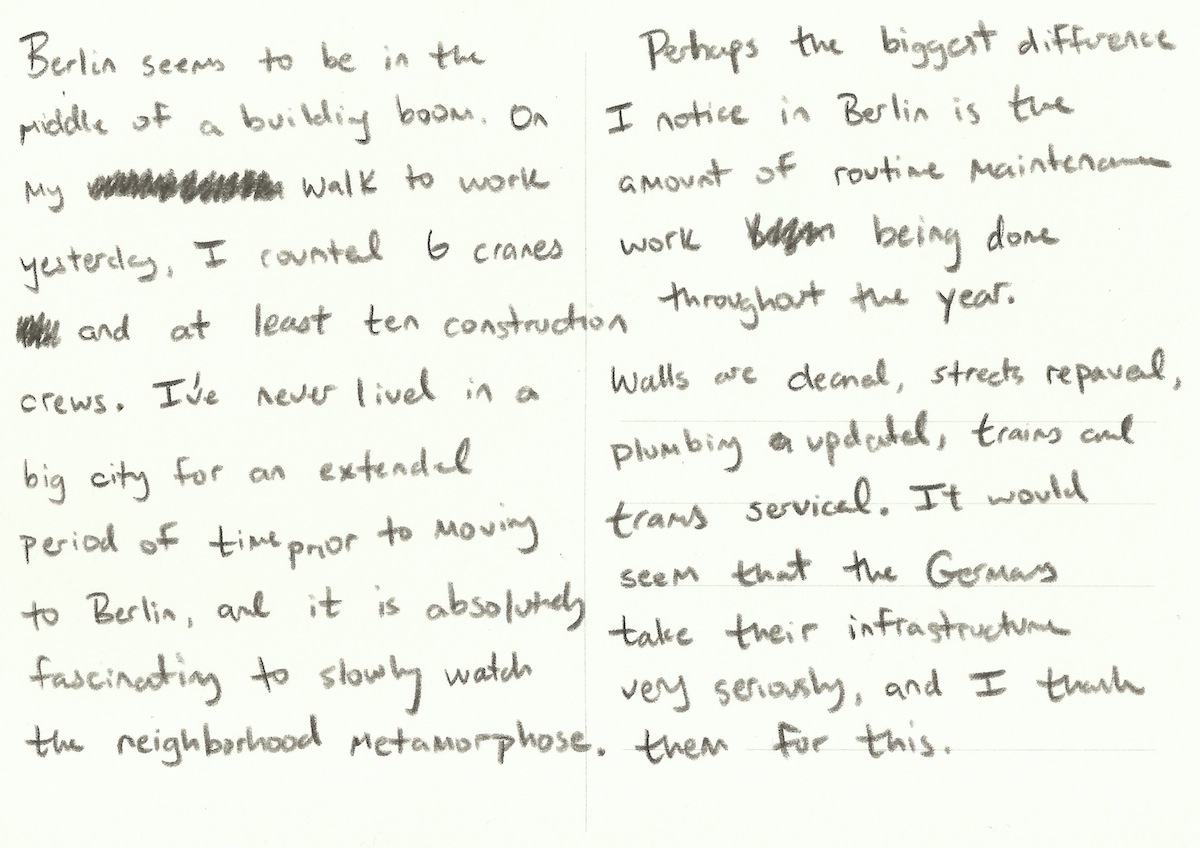 Berlin seems to be in the
middle of a building boom. On
my walk to work
yesterday, I counted 6 cranes
and at least ten construction
crews. I've never lived in a
big city for an extended
period of time prior to moving
to Berlin, and it is absolutely
fascinating to slowly watch
the neighborhood metamorphose.
Perhaps the biggest difference
I notice in Berlin is the
amount of routine maintenance
work being done
throughout the year.
Walls are cleaned, streets repaved,
plumbing updated, trains and
trams serviced. It would
seem that the Germans
take their infrastructure
very seriously, and I thank
them for this.